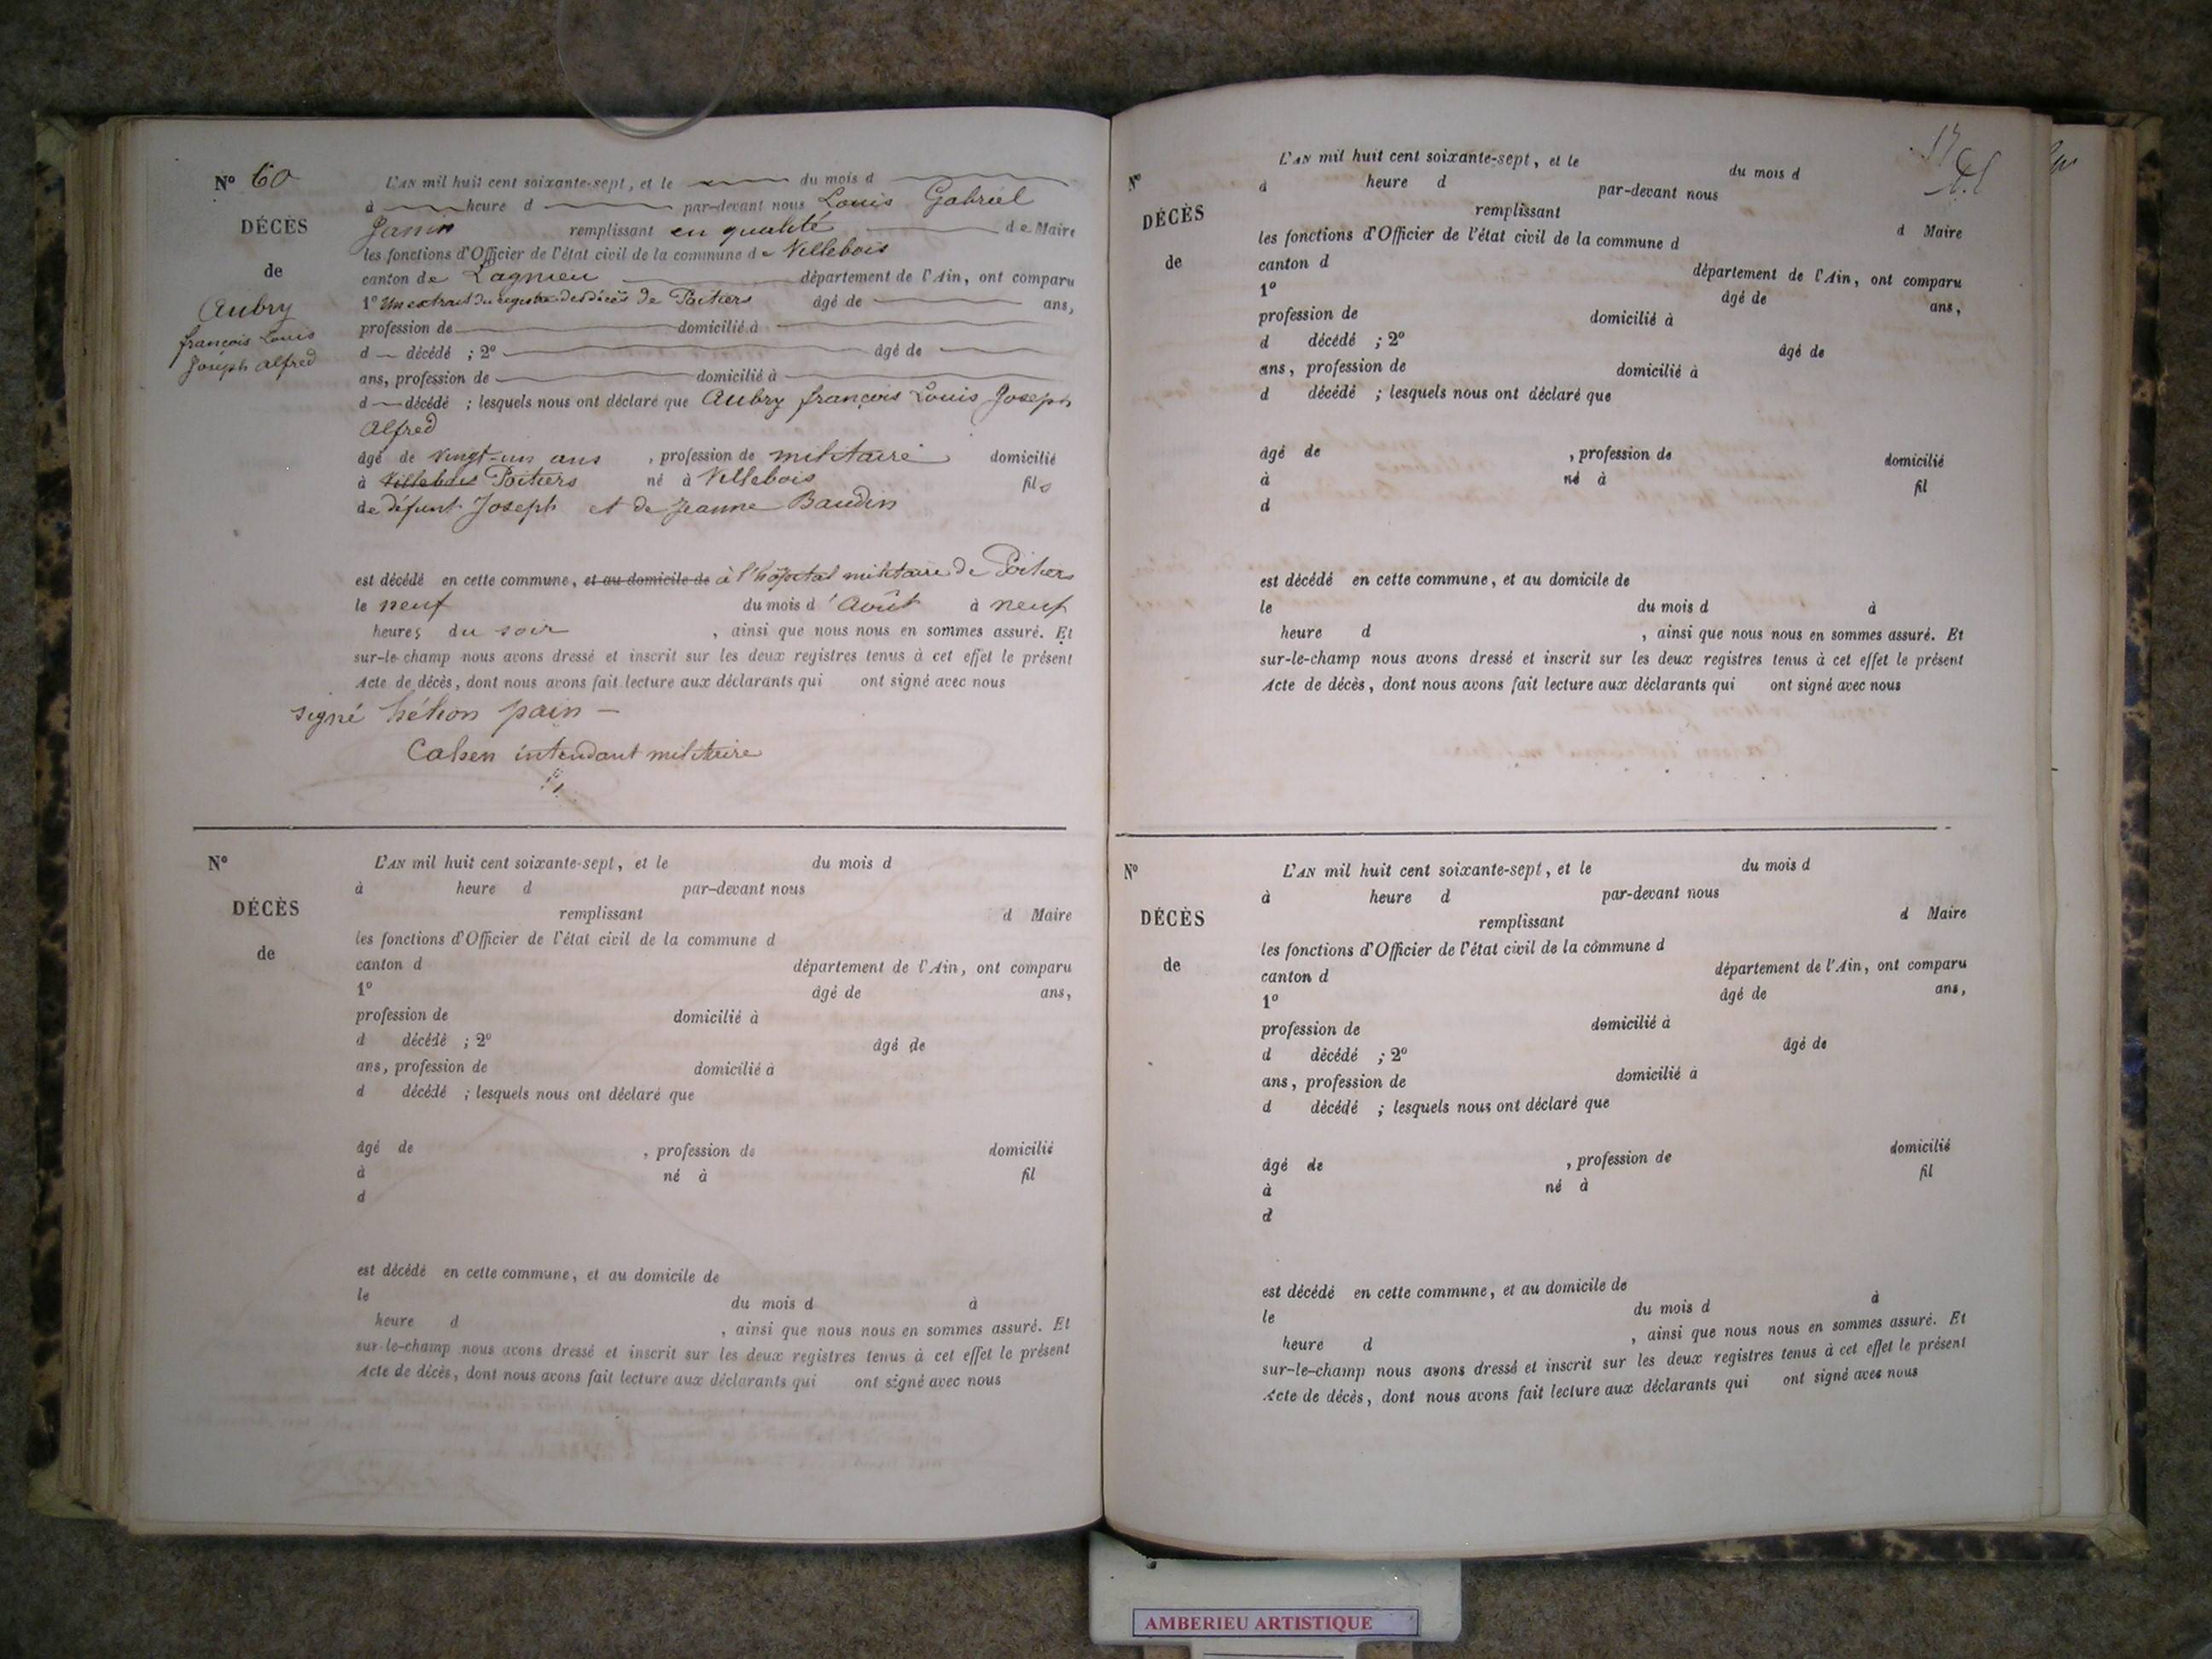 N° 60
DÉCÈS
de
Aubry
françois Louis
Joseph Alfred
L'AN mil huit cent soixante-sept, et le du mois d
à heure d par-devant nous Louis Gabriel
Janin remplissant en qualité de Maire
les fonctions d'Officier de l'état civil de la commune de Villebois
canton de Lagnieu département de l'Ain, ont comparu
1° Un extrait du registre des décès de Poitiers âgé de ans,
profession de domicilié à
d décédé ; 2° âgé de
ans, profession de domicilié à
d décédé ; lesquels nous ont déclaré que Aubry françois Louis Joseph
Alfred
âgé de vingt-un ans , profession de militaire domicilié
à Villebois Poitiers né à Villebois fils
de défunt Joseph et de Jeanne Baudin
est décédé en cette commune, et au domicile de à l'hôpital militaire de Poitiers
le neuf du mois d'Août à neuf
heures du soir , ainsi que nous nous en sommes assuré. Et
sur-le-champ nous avons dressé et inscrit sur les deux registres tenus à cet effet le présent
Acte de décès, dont nous avons fait lecture aux déclarants qui ont signé avec nous
signé hélion pain
Cahen intendant militaire
N°
DÉCÈS
de
L'AN mil huit cent soixante-sept, et le du mois d
à heure d par-devant nous
remplissant d Maire
les fonctions d'Officier de l'état civil de la commune d
canton d département de l'Ain, ont comparu
1° âgé de ans,
profession de domicilié à
d décédé ; 2° âgé de
ans, profession de domicilié à
d décédé ; lesquels nous ont déclaré que
âgé de , profession de domicilié
à né à fil
d
est décédé en cette commune, et au domicile de
le du mois d à
heure d , ainsi que nous nous en sommes assuré. Et
sur-le-champ nous avons dressé et inscrit sur les deux registres tenus à cet effet le présent
Acte de décès, dont nous avons fait lecture aux déclarants qui ont signé avec nous
N°
DÉCÈS
de
L'AN mil huit cent soixante-sept, et le du mois d
à heure d par-devant nous
remplissant d Maire
les fonctions d'Officier de l'état civil de la commune d
canton d département de l'Ain, ont comparu
1° âgé de ans,
profession de domicilié à
d décédé ; 2° âgé de
ans, profession de domicilié à
d décédé ; lesquels nous ont déclaré que
âgé de , profession de domicilié
à né à fil
d
est décédé en cette commune, et au domicile de
le du mois d à
heure d , ainsi que nous nous en sommes assuré. Et
sur-le-champ nous avons dressé et inscrit sur les deux registres tenus à cet effet le présent
Acte de décès, dont nous avons fait lecture aux déclarants qui ont signé avec nous
N°
DÉCÈS
de
L'AN mil huit cent soixante-sept, et le du mois d
à heure d par-devant nous
remplissant d Maire
les fonctions d'Officier de l'état civil de la commune d
canton d département de l'Ain, ont comparu
1° âgé de ans,
profession de domicilié à
d décédé ; 2° âgé de
ans, profession de domicilié à
d décédé ; lesquels nous ont déclaré que
âgé de , profession de domicilié
à né à fil
d
est décédé en cette commune, et au domicile de
le du mois d à
heure d , ainsi que nous nous en sommes assuré. Et
sur-le-champ nous avons dressé et inscrit sur les deux registres tenus à cet effet le présent
Acte de décès, dont nous avons fait lecture aux déclarants qui ont signé avec nous
AMBERIEU ARTISTIQUE